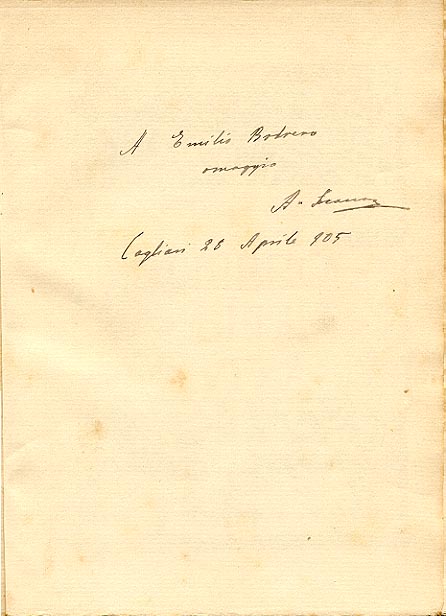 A Emilio Bodrero
omaggio
A.
Cagliari 28 Aprile 905